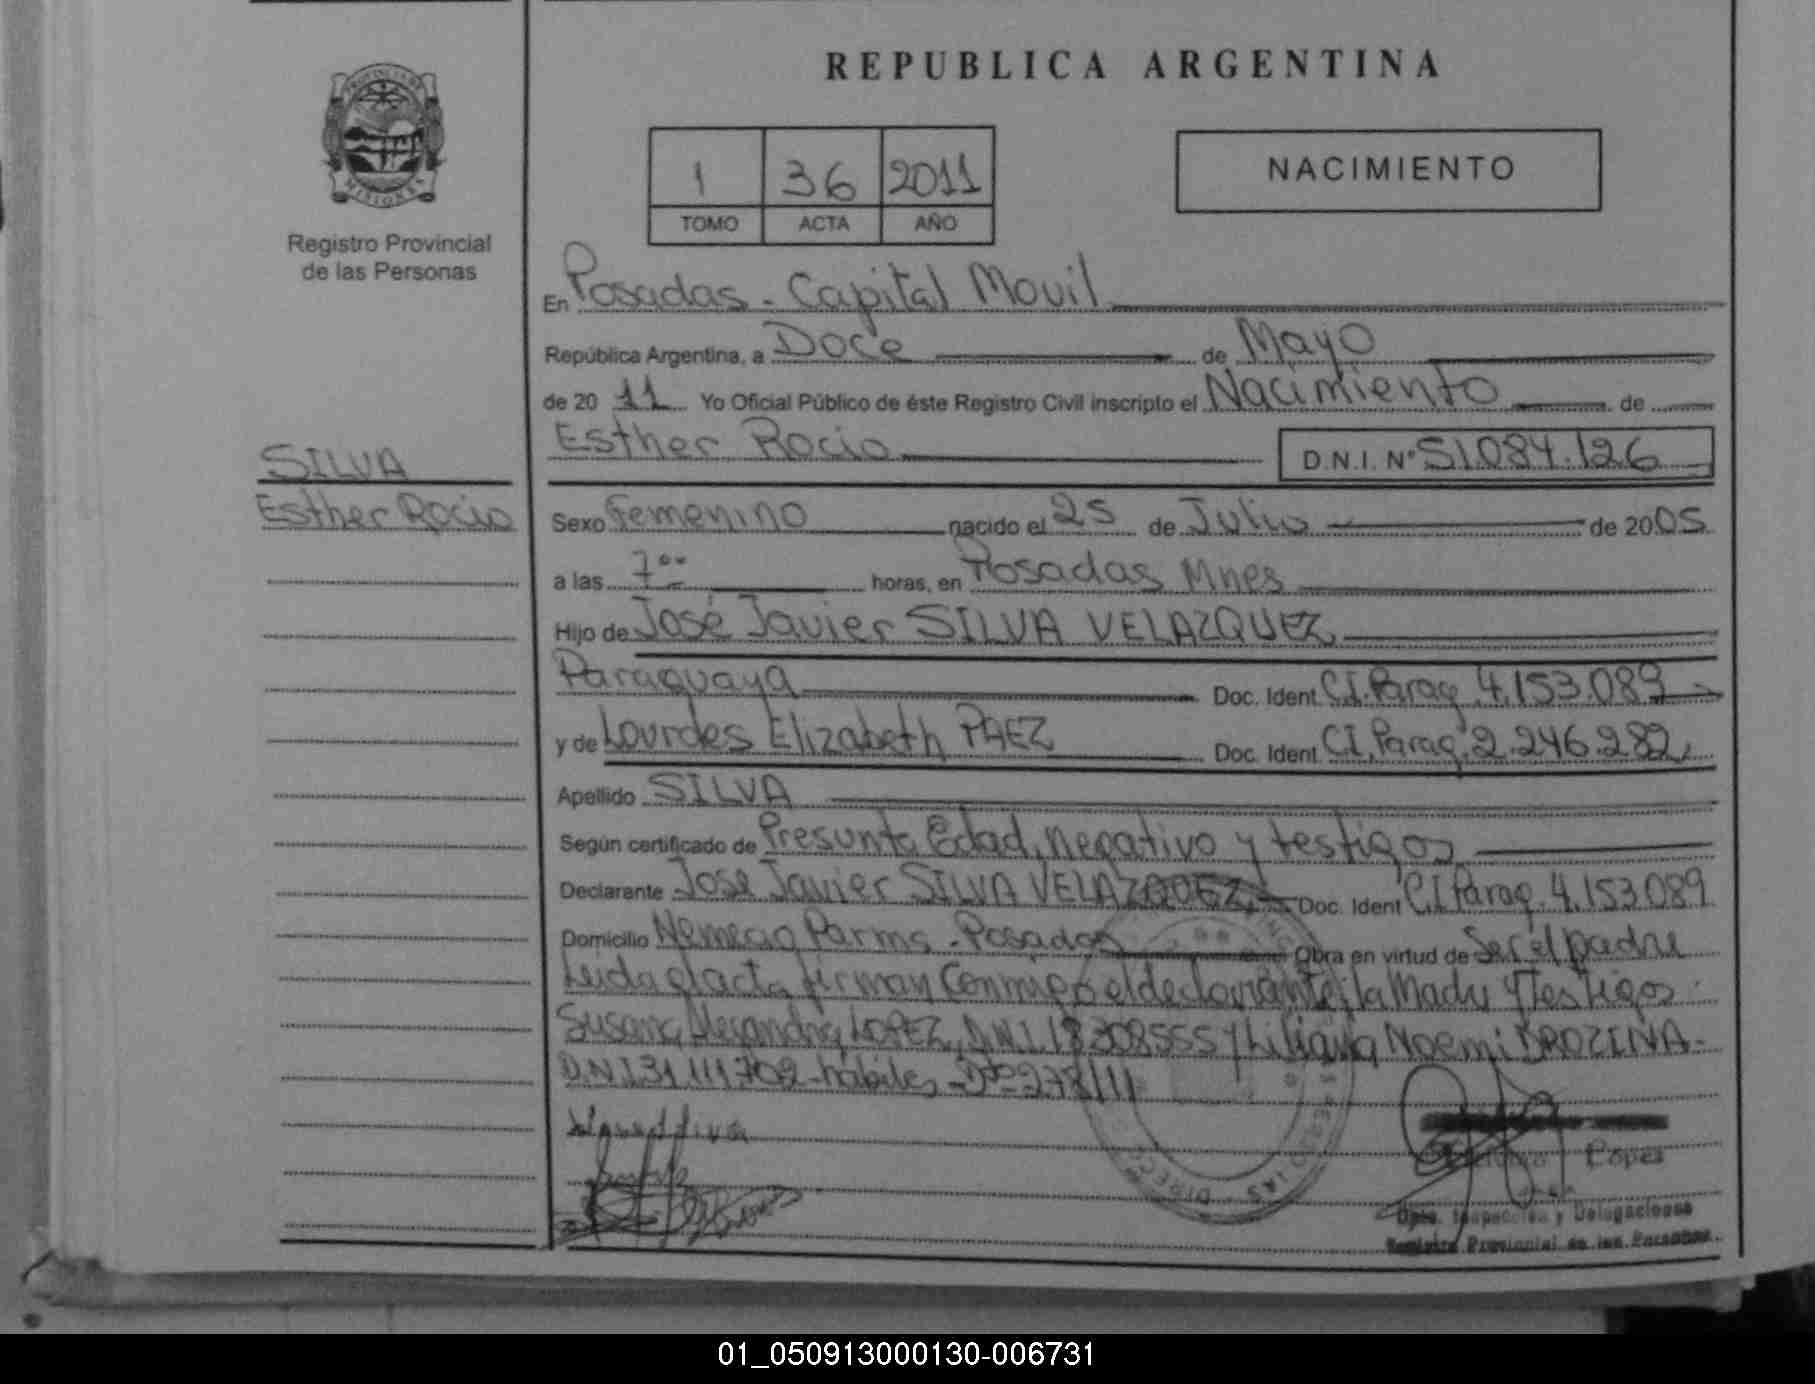 REPUBLICA ARGENTINA
PROVINCIA DE MISIONES
Registro Provincial
de las Personas
1 36 2011
TOMO ACTA AÑO
NACIMIENTO
En Posadas - Capital Movil
República Argentina, a Doce de Mayo
de 20 11 Yo Oficial Público de éste Registro Civil inscripto el Nacimiento de
Esther Rocio D.N.I. Nº 51.084.126
SILVA
Esther Rocio
Sexo femenino nacido el 25 de Julio de 2005
a las 7 ºº horas, en Posadas Mnes
Hijo de José Javier SILVA VELAZQUEZ
Paraguaya Doc. Ident. C.I. Parag. 4.153.089
y de Lourdes Elizabeth PAEZ Doc. Ident. C.I. Parag. 2.246.282
Apellido SILVA
Según certificado de Presunta Edad, negativo y testigos
Declarante José Javier SILVA VELAZQUEZ Doc. Ident C.I Parag. 4.153.089
Domicilio Nemecio Parma - Posadas Obra en virtud de Ser el padre
Leida el acta firman Conmigo el declarante, la Madre y Testigos:
Susana Alejandra LOPEZ, D.N.I. 18308555 y Liliana Noemi BROZINA-
D.N.I 31.111.702 - hábiles - Dto 278/11
Lopez
Dpto. Inspección y Delegaciones
Registro Provincial de las Personas
01_050913000130-006731